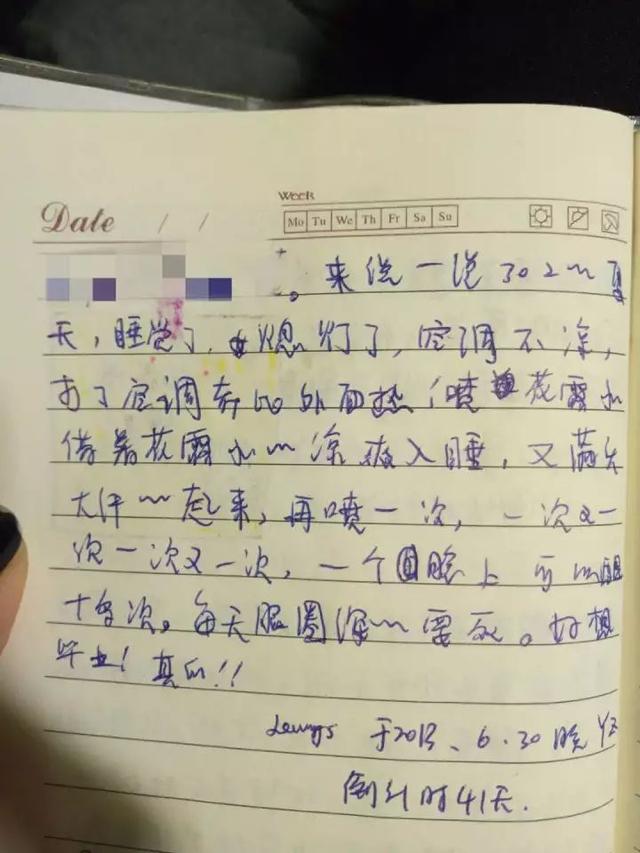 WEEK
Date / /
Mo Tu We Th Fr Sa Su
。来说一说302的夏
天,睡觉了,熄灯了,空调不凉,
为了空调奔比外面热,喷花露水
借着花露水的凉爽入睡,又满头
大汗的起来,再喷一次,一次又一
次一次又一次,一个晚上可以喷
十多次。每天眼圈深的要死。好想
毕业!真的!!
于2013.6.30晚
倒计时41天.